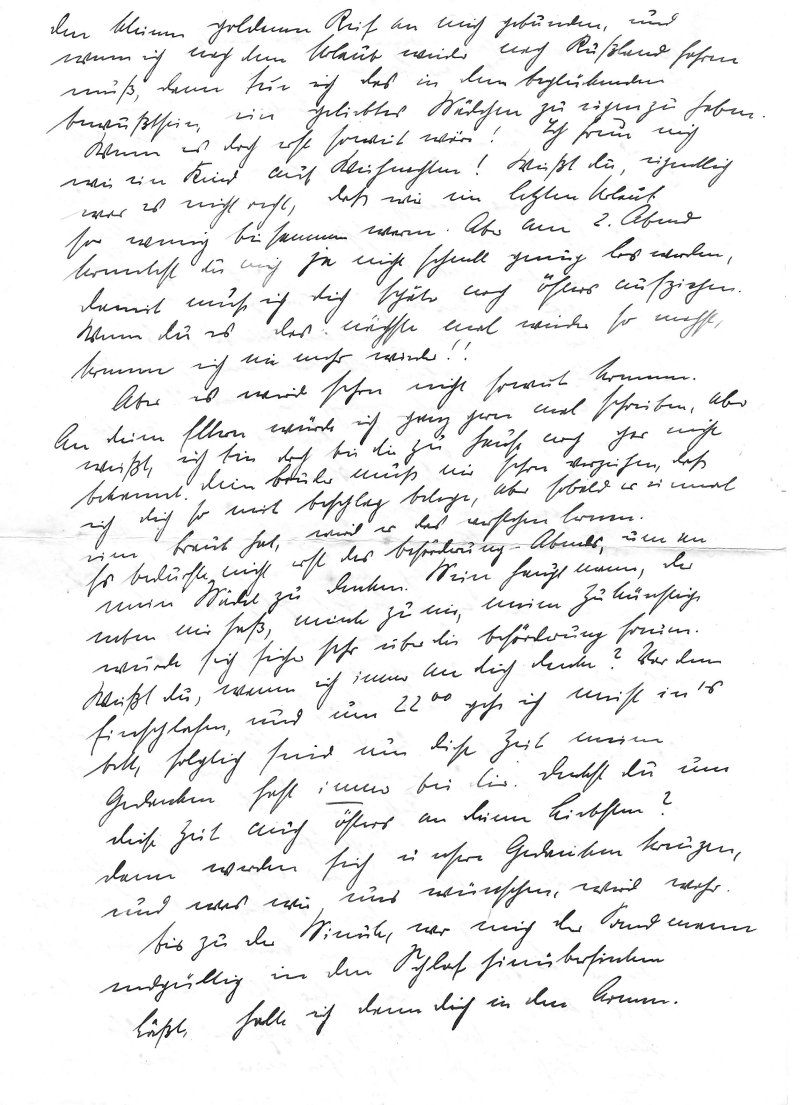 den kleinen goldenen Reif an mich gebunden, und
wenn ich nach dem Urlaub wieder nach Rußland fahren
muß, dann tue ich das in dem beglückenden
bewußtsein, ein geliebtes Mädchen zu eigen zu haben.
Wenn es doch erst soweit wäre! Ich freue mich
wie ein Kind auf Weihnachten! Weißt du, eigentlich
war es nicht recht, daß wir im letzten Urlaub
so wenig beisammen waren. Aber am 2. Abend
konntest du mich ja nicht schnell genug los werden,
damit muß ich dich später noch öfters aufziehen.
Wenn du es das nächste mal wieder so machst,
komme ich nie mehr wieder!!
Aber es wird schon nicht soweit kommen.
An deine Eltern würde ich ganz gern mal schreiben, aber
weißt, ich bin doch bei dir zu Hause noch gar nicht
bekannt. dein bruder muß mir schon verzeihen, daß
ich dich so mit beschlag belege, aber sobald er einmal
eine braut hat, wird er das verstehen können.
Es bedurfte nicht erst des beförderung-Abends, um an
mein Mädel zu denken. Mein Hauptmann, der
neben mir saß, meinte zu mir, meine Zukünftige
würde sich sicher sehr über die beförderung freuen.
Weißt du, wann ich immer an dich denke? Vor dem
Einschlafen, und um 22⁰⁰ gehe ich meist in's
bett, folglich sind um diese Zeit meine
Gedanken fast immer bei dir. denkst du um
diese Zeit auch öfters an deinen Liebsten?
dann werden sich unsere Gedanken kreuzen,
und was wir uns wünschen, wird wahr.
bis zu der Minute, wo mich der Sandmann
endgültig in den Schlaf hinübersinken
läßt, halte ich dann dich in den Armen.